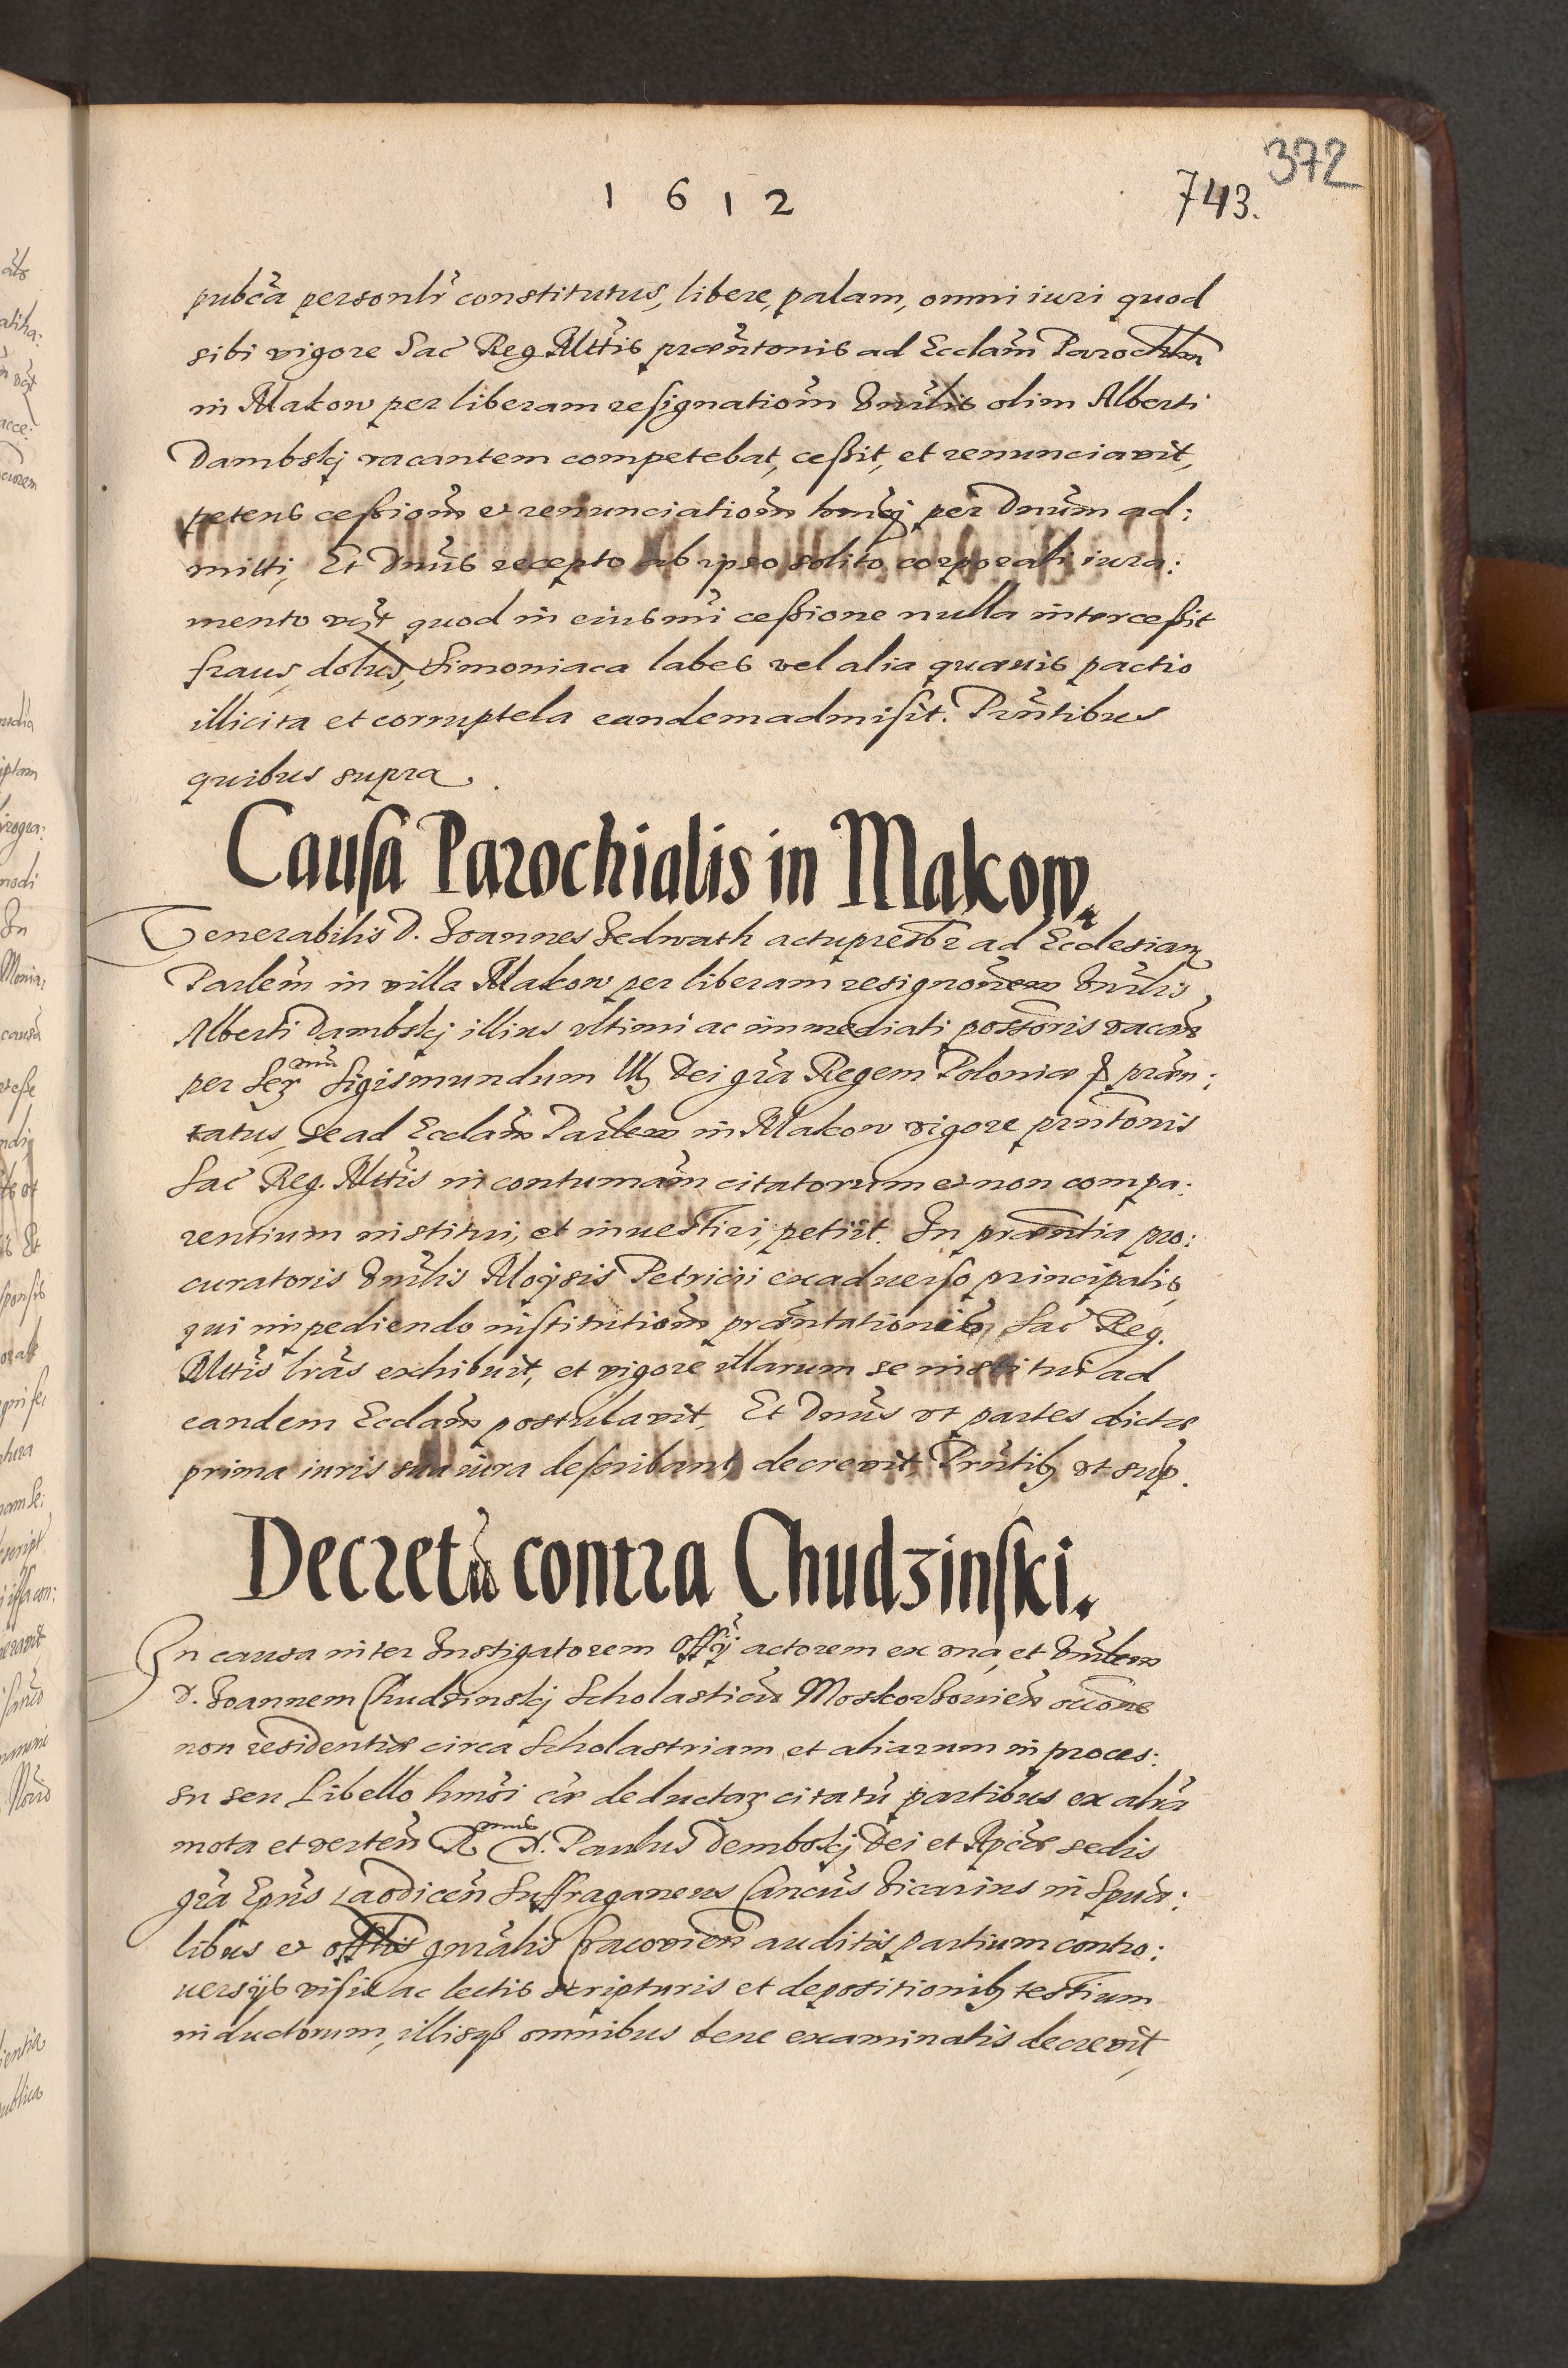 1612
743.
372
pubca personlr constitutus, libere, palam, omni iuri quod
sibi vigore Sac Reg Mttis præntonis ad Ecclam Parochlem
in Makow per liberam resignatiom Vnrlis olim Alberti
Dambskj vacantem competebat, ceßit, et renunciavit,
petens ceßiom et renunciatiom hmoj per Dnum ad:
mitti, Et Dnus recepto ab ipso solito corporali iura:
mento vzt quod in eiusmi ceßione nulla interceßit
fraus, dolus, Simoniaca labes vel alia quauis pactio
illicita et corruptela eandem admisit. Prntibus
quibus supra.
Causa Parochialis in Makow.
Venerabilis D. Joannes Sedwath actu presbr ad Ecclesiam
Parlem in villa Makow per liberam resignonem Vnrlis
Alberti Dambskj illius vltimi ac immediati possoris vacan
per Ser num Sigismundum III Dei gra Regem Poloniæ & præn:
tatus, se ad Ecclam Parlem in Makow vigore prntonis
Sac Reg. Mttis in contumam citatorum et non compa:
rentium institui, et inuestiri, petiit. In præntia pro:
curatoris Vnrlis Aloysis Petricii ex aduerso principalis,
qui impediendo institutiom præntationis Sac Reg.
Mttis lras exhibuit, et vigore illarum se institui ad
eandem Ecclam postulavit, Et Dnus vt partes dictæ
prima iuris sua iura describant, decrevit, Prntib vt sup.
Decretu contra Chudzinski.
In causa inter Instigatorem Offij actorem ex vna, et Vnrlem
D. Joannem Chudzinskj Scholasticu Moskorzouien occone
non residentiæ circa Scholastriam et aliarum in proces:
su seu Libello hmoi cær deductar citatu partibus ex altra
mota et verten R mus D. Paulus Dembskj Dei et Aplcæ sedis
gra Epus Laodicen Suffraganeus Cancus Vicarius in Spua:
libus et offlis gnralis Cracovien auditis partium contro:
uersijs visis ac lectis scripturis et depositionib testium
inductorum, illisq omnibus bene examinatis decrevit,